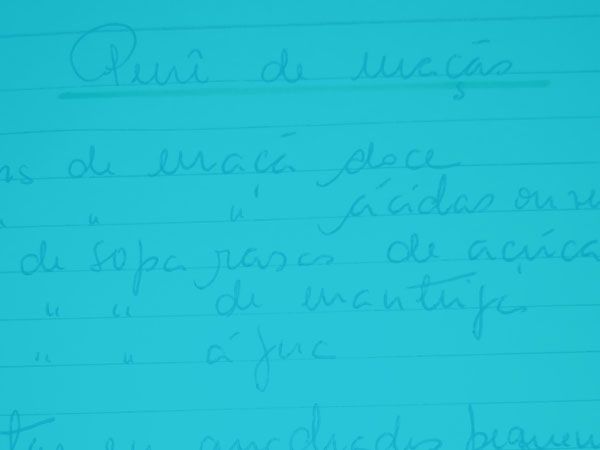 Purê de maçãs
de maçã doce
" " ácidas ou
de sopa rasas de açúca
" " de manteiga
" " água
em quadrados pequen